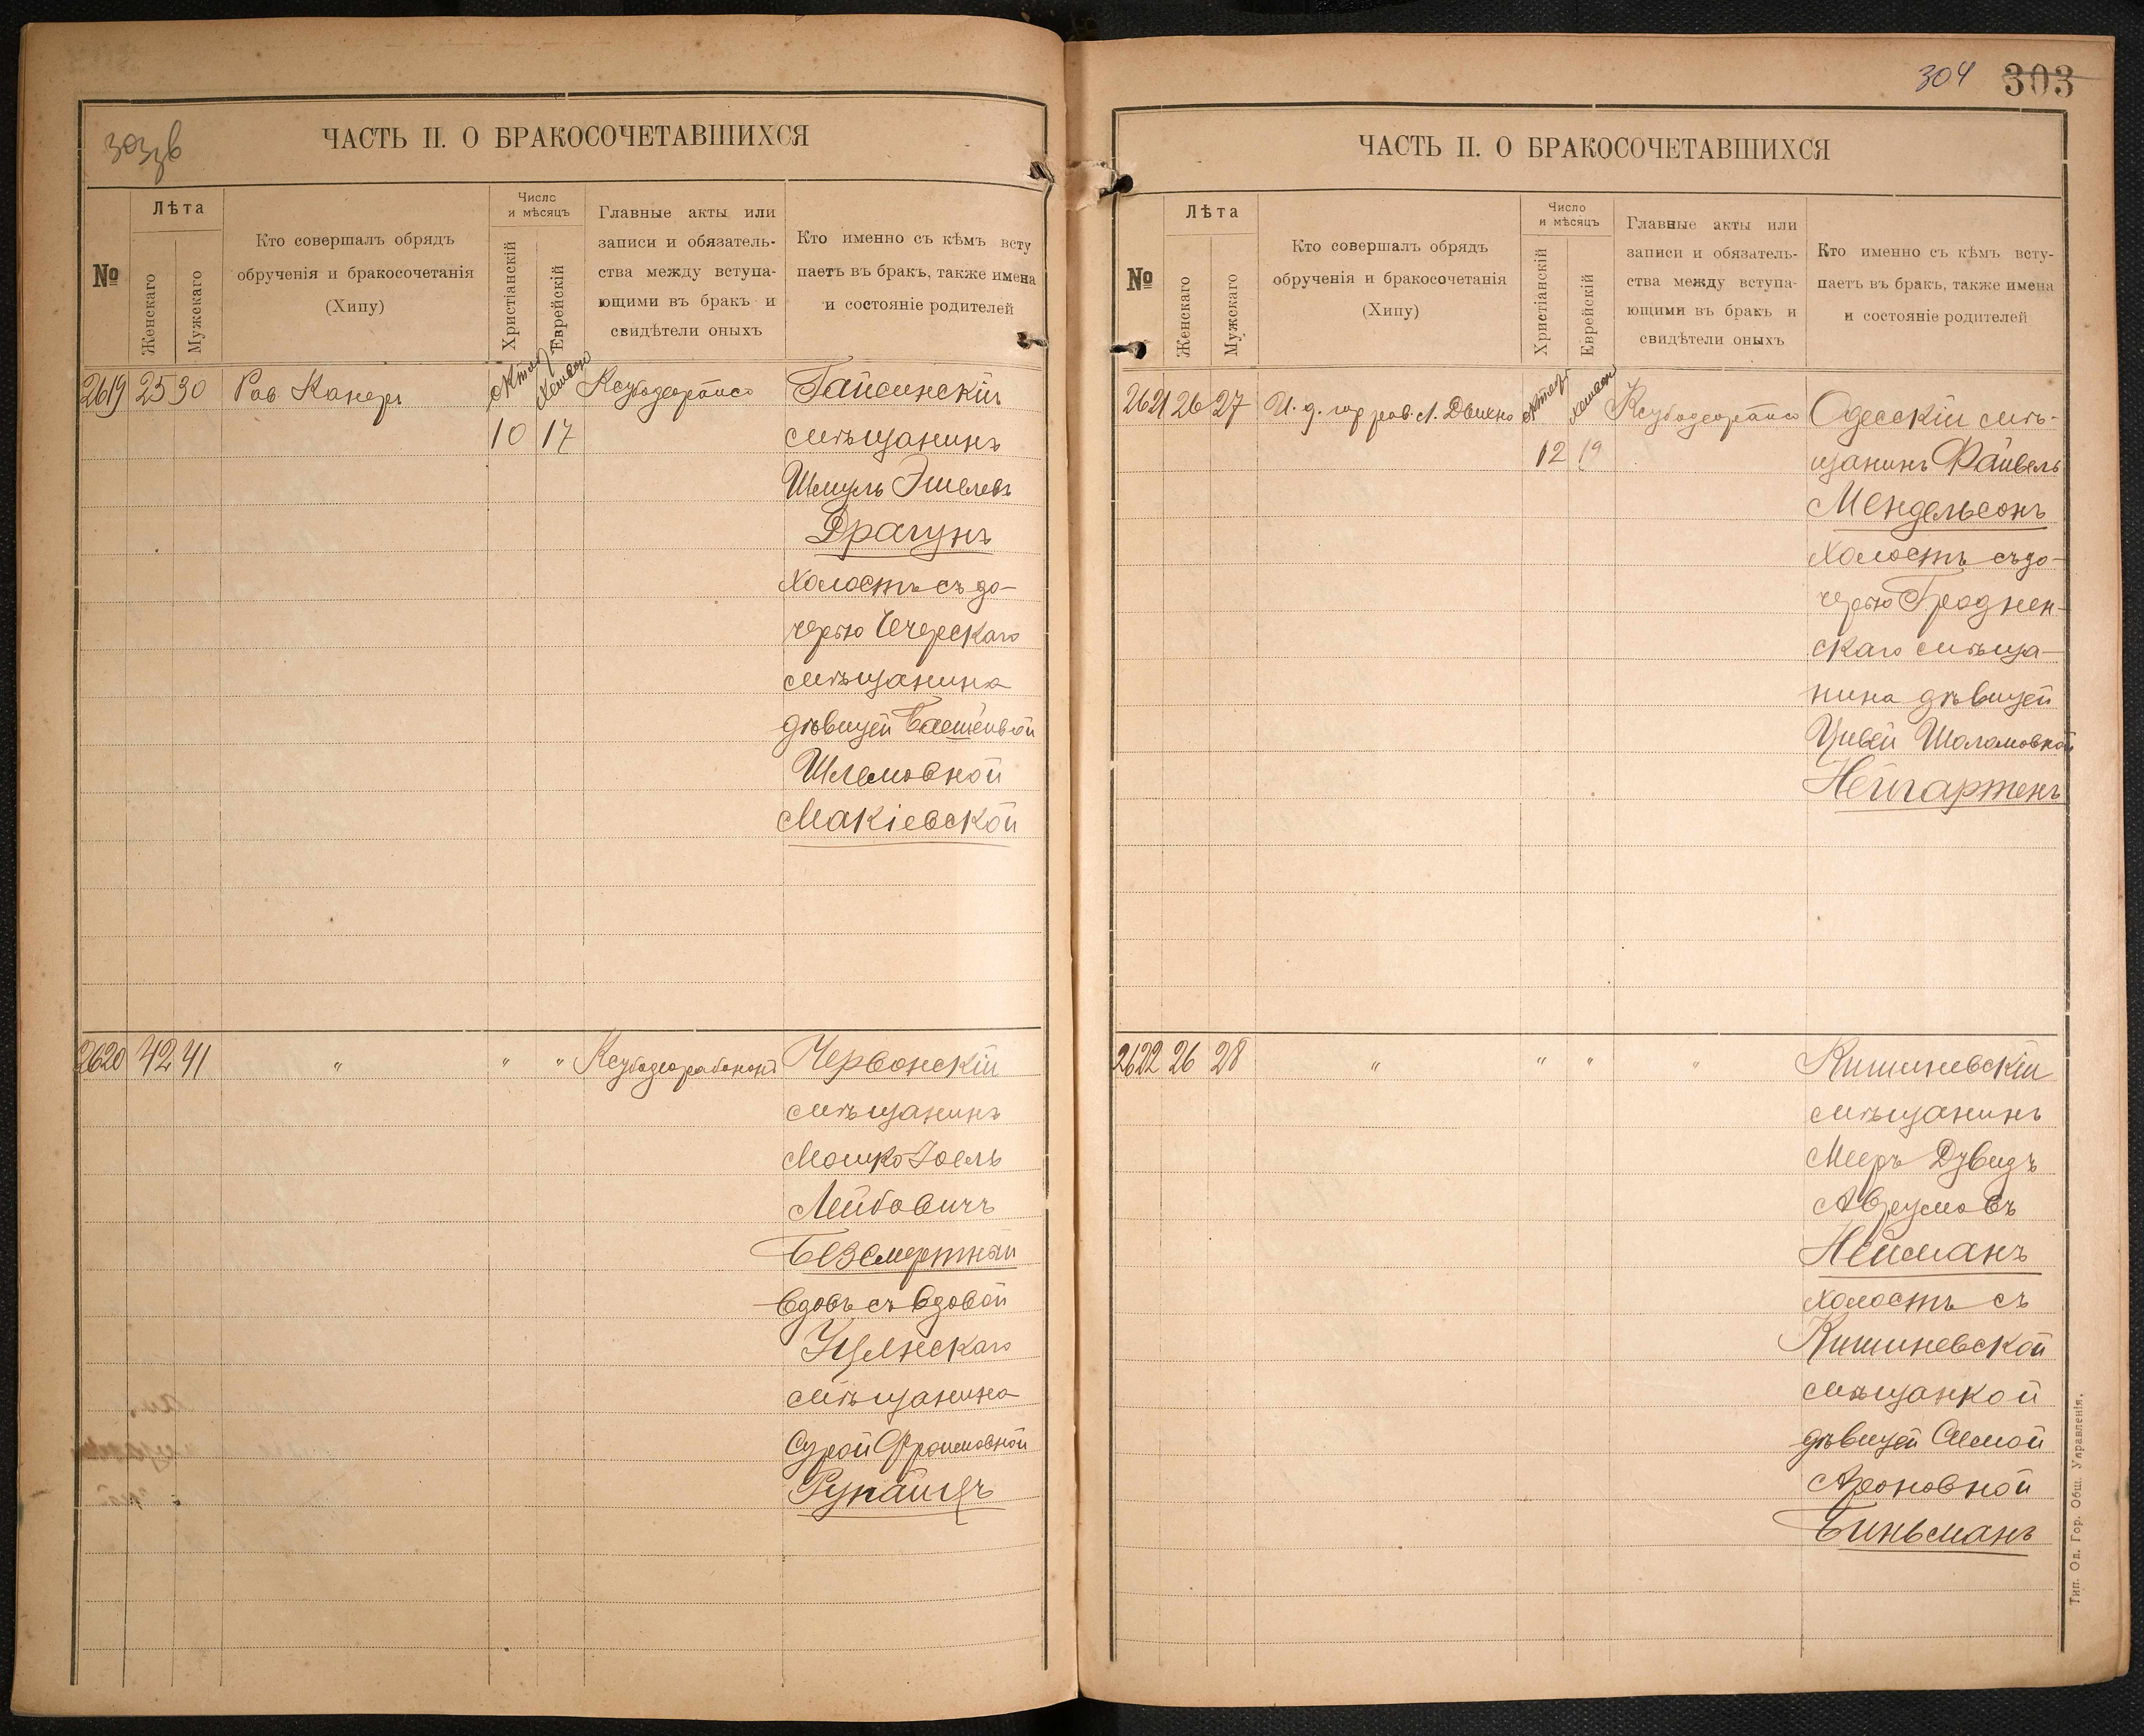 303в
ЧАСТЬ II. О БРАКОСОЧЕТАВШИХСЯ
№
Лѣта
Женскаго
Мужескаго
Кто совершалъ обрядъ
обрученія и бракосочетанія
(Хипу)
Число
и мѣсяцъ
Христіанскій
Еврейскій
Главные акты или
записи и обязатель-
ства между вступа-
ющими въ бракъ и
свидѣтели оныхъ
Кто именно съ кѣмъ всту
паетъ въ бракъ, также имена
и состояніе родителей
2619 25 30 Рав Канеръ
10 17
Гайсинскій
мѣщанинъ
Шмуль
Драгунъ
холостъ съ до-
черью Чечерскаго
мѣщанина
дѣвицей Басшейвой
Шлемовной
Макіевской
2620 42 41 " " "
Червонскій
мѣщанинъ
Мошко Іоель
Лейбовичъ
Безсмертный
вдовъ съ вдовой
мѣщанина
Сурой Фроимовной
304 303
ЧАСТЬ II. О БРАКОСОЧЕТАВШИХСЯ
№
Лѣта
Женскаго
Мужескаго
Кто совершалъ обрядъ
обрученія и бракосочетанія
(Хипу)
Число
и мѣсяцъ
Христіанскій
Еврейскій
Главные акты или
записи и обязатель-
ства между вступа-
ющими въ бракъ и
свидѣтели оныхъ
Кто именно съ кѣмъ всту-
паетъ въ бракъ, также имена
и состояніе родителей
2621 26 27 И. д. гор. рав.
12 19
Одесскій мѣ-
щанинъ Файвель
Мендельсонъ
холостъ съ до-
черью Гроднен-
скаго мѣща-
нина дѣвицей
Цивей Шоламовной
Нейгартенъ
2622 26 28 " " " "
Кишиневскій
мѣщанинъ
Мееръ Дувидъ
Аврумовъ
Нейманъ
холостъ съ
Кишиневской
мѣщанкой
дѣвицей
Ароновной
Биньманъ
Тип. Од. Гор. Общ. Управленія.